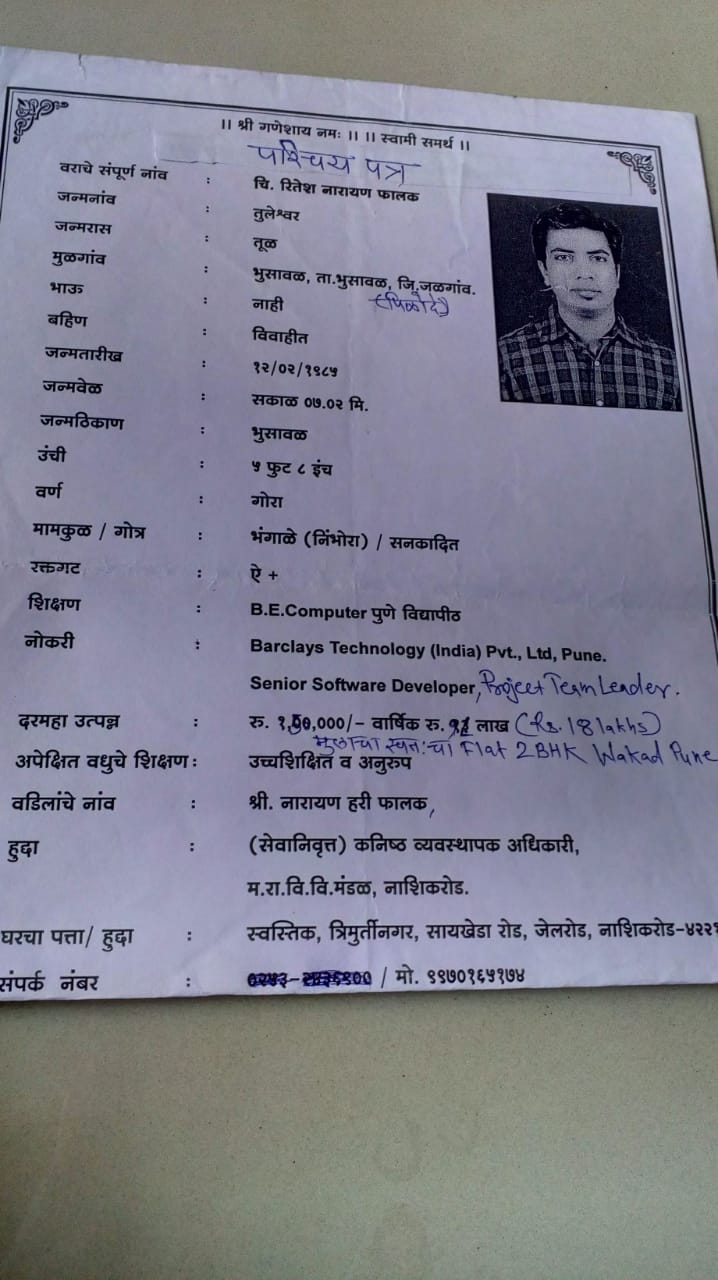 ॥ श्री गणेशाय नमः ॥ ॥ स्वामी समर्थ ॥
परिचय पत्र
वराचे संपूर्ण नांव : चि. रितेश नारायण फालक
जन्मनांव : तुलेश्वर
जन्मरास : तूळ
मुळगांव : भुसावळ, ता.भुसावळ, जि.जळगांव.
भाऊ : नाही (पिळोदे)
बहिण : विवाहीत
जन्मतारीख : १२/०२/१९८५
जन्मवेळ : सकाळ ०७.०२ मि.
जन्मठिकाण : भुसावळ
उंची : ५ फुट ८ इंच
वर्ण : गोरा
मामकुळ / गोत्र : भंगाळे (निंभोरा) / सनकादित
रक्तगट : ऐ +
शिक्षण : B.E.Computer पुणे विद्यापीठ
नोकरी : Barclays Technology (India) Pvt., Ltd, Pune.
Senior Software Developer, Project Team Leader.
दरमहा उत्पन्न : रु. १,५०,०००/- वार्षिक रु. लाख (Rs. 18 lakhs)
मुलाचा स्वतःचा Flat 2BHK Wakad Pune
अपेक्षित वधुचे शिक्षण : उच्चशिक्षित व अनुरुप
वडिलांचे नांव : श्री. नारायण हरी फालक,
हुद्दा : (सेवानिवृत्त) कनिष्ठ व्यवस्थापक अधिकारी,
म.रा.वि.वि.मंडळ, नाशिकरोड.
घरचा पत्ता/ हुद्दा : स्वस्तिक, त्रिमुर्तीनगर, सायखेडा रोड, जेलरोड, नाशिकरोड-४२२१
संपर्क नंबर : / मो. ९९७०१६५१७४